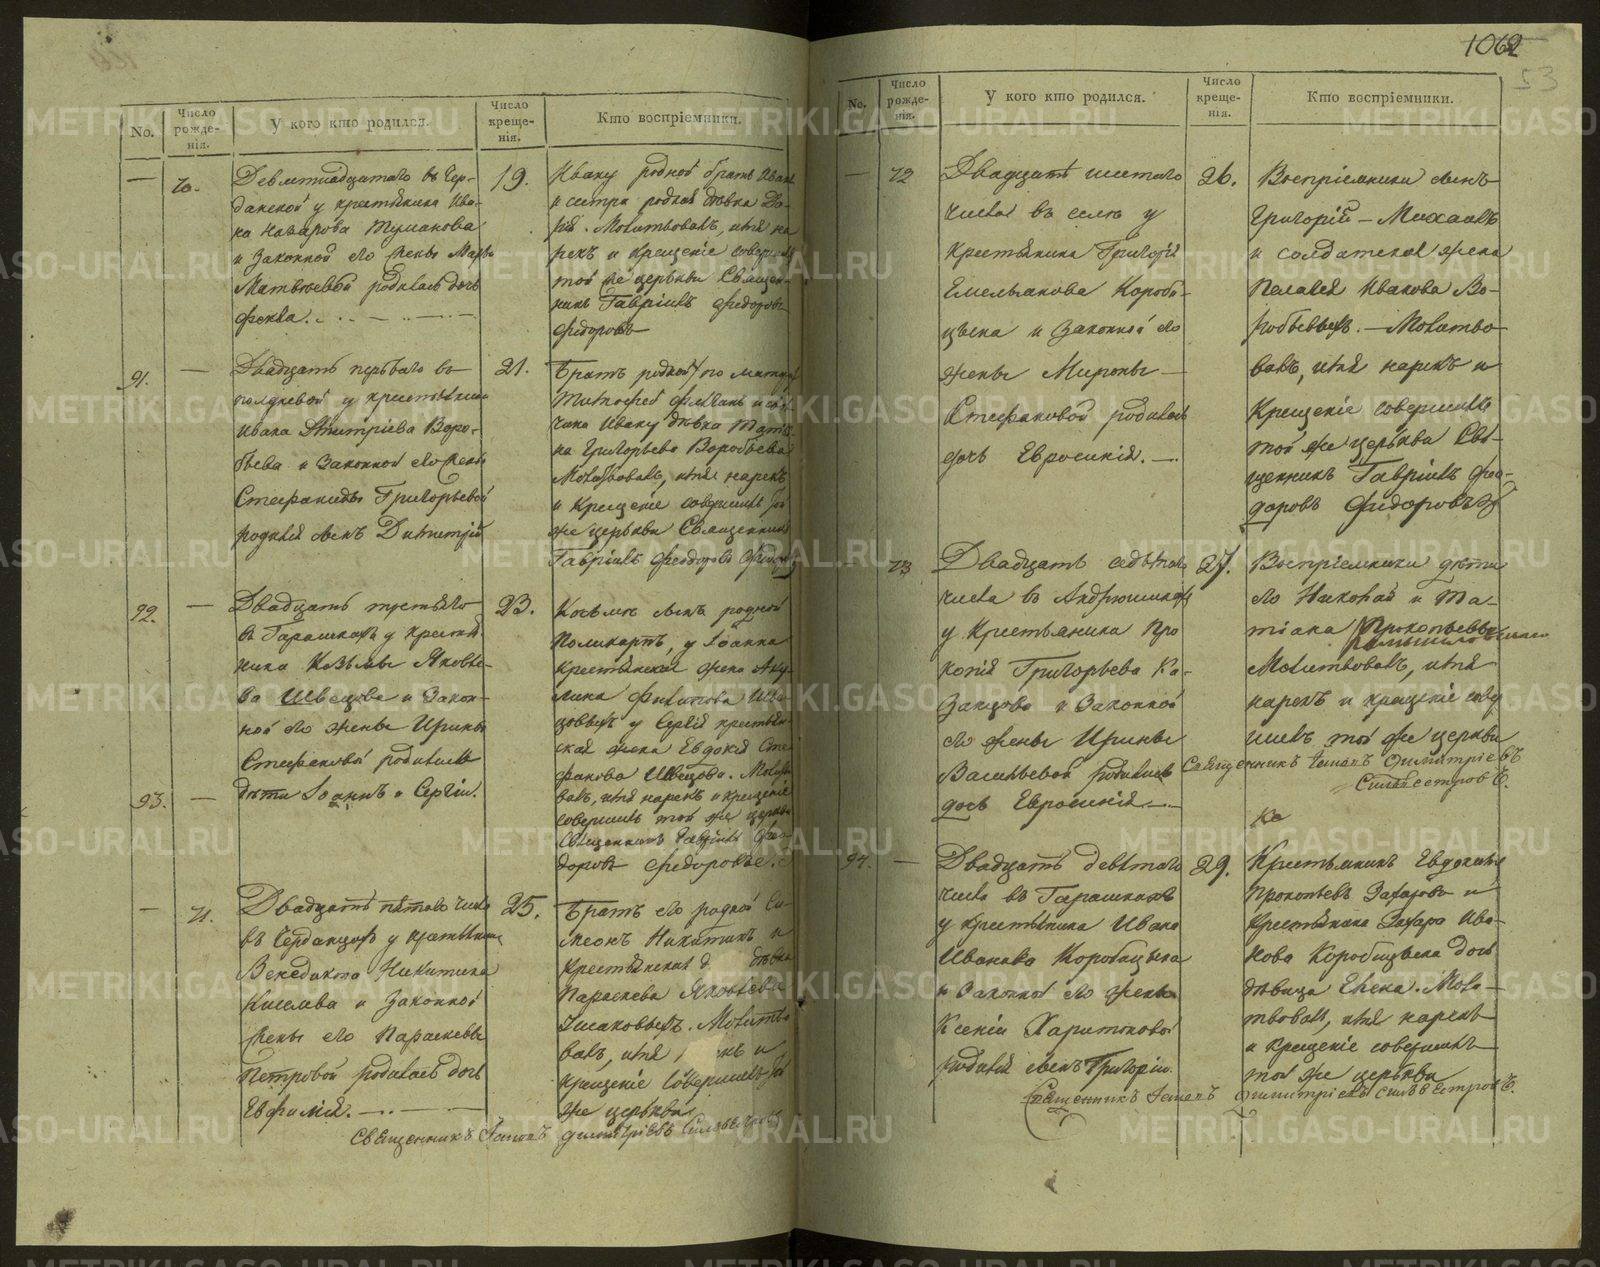 1062
53
No.
Число рожденія.
У кого кто родился.
Число крещенія.
Кто воспріемники.
70.
Девятнадцатаго въ Чер-
данской у крестьянина Ива-
на Назарова Туманова
и законной его жены Марьи
Матвеевой родилась дочь
Фекла.
19.
Ивану родной братъ Иванъ
и сестра родная девка Да-
рья. Молитвовалъ, имя на
рекъ и крещеніе совершилъ
той же церкви Священ-
никъ Гавріилъ Федоровъ
Федоровъ
91.
Двадцать перваго въ
полдневой у крестьянина
Ивана Дмитріева Воро-
бьева и законной его жены
Стефаниды Григорьевой
родился сынъ Димитрій
21.
Братъ родной по матери
Тимофей
Ивану девка
на Григорьева Воробьева
Молитвовалъ, имя нарекъ
и крещеніе совершилъ той
же церкви Священникъ
Гавріилъ Феодоровъ
92.
Двадцать третьяго
въ Гарашкахъ у крестья-
нина Козьмы Яковле-
ва Швецова и закон-
ной его жены Ирины
Стефановой родились
93.
дети Іоаннъ и Сергій.
23.
Косьмы сынъ родной
Поликарпъ, у Іоанна
крестьянская жена Аку-
лина Филипова Шве-
цовыхъ у Сергія крестьян-
ская жена Евдокія Сте-
фанова Швецова. Молитво-
валъ, имя нарекъ и крещеніе
совершилъ той же церкви
Священникъ Гавріилъ Фео-
доровъ Федоровъ.
71.
Двадцать пятаго числа
въ Черданцахъ у крестьянина
Венедикта Никитина
Киселева и законной
жены его Параскевы
Петровой родилась дочь
Евфимія.
25.
Братъ его родной Си-
меонъ Никитинъ и
крестьянская девка
Параскева Яковлева
Молитво
валъ, имя и
крещеніе совершилъ той
же церкви
Священникъ Іоаннъ Димитріевъ Сильвестровъ
No.
Число рожденія.
У кого кто родился.
Число крещенія.
Кто воспріемники.
72
Двадцать шестаго
числа въ селе у
крестьянина Григорія
Емельянова Короби-
цына и законной его
жены Мироньи
Стефановой родилась
дочь Евросинія.
26.
Воспріемники сынъ
Григорій Михаилъ
и солдатская жена
Пелагея Иванова Во-
робьевыхъ. Молитво
валъ, имя нарекъ и
крещеніе совершилъ
той же церкви Свя-
щенникъ Гавріилъ Фео-
доровъ Федоровъ
73
Двадцать седьмаго
числа въ Андрюшиной
у крестьянина Про
копія Григорьева Ка-
занцова и законной
его жены Ирины
Васильевой родилась
дочь Евросинія
27.
Воспріемники дети
его Николай и Та-
тіана Прокопьевы
Молитвовалъ, имя
нарекъ и крещеніе совер
шилъ той же церкви
Священникъ Іоаннъ Димитріевъ
Сильвестровъ.
94.
Двадцать девятаго
числа въ Гарашкахъ
у крестьянина Ивана
Иванова Коробицына
и законной его жены
Ксеніи Харитоновой
родился сынъ Григорій.
29.
Крестьянинъ Евдокимъ
Прокопьевъ Захаровъ и
крестьянина Захара Ива-
нова Коробицына дочь
девица Елена. Моли-
твовалъ, имя нарекъ
и крещеніе совершилъ
той же церкви
Священникъ Іоаннъ Димитріевъ Сильвестровъ.
METRIKI.GASO-URAL.RU